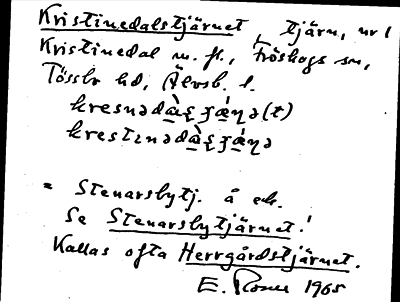 Kristinedalstjärnet, tjärn, nr 1
Kristinedal m. fl., Fröskogs sn,
Tössbo hd, Älvsb. l.
kresnədà̱ʂɟǽ̱ɳə(t)
krestɪnədà̱ʂɟǽ̱ɳə
= Stenarsbytj. å ek.
Se Stenarsbytjärnet!
Kallas ofta Herrgårdstjärnet.
E. 1965